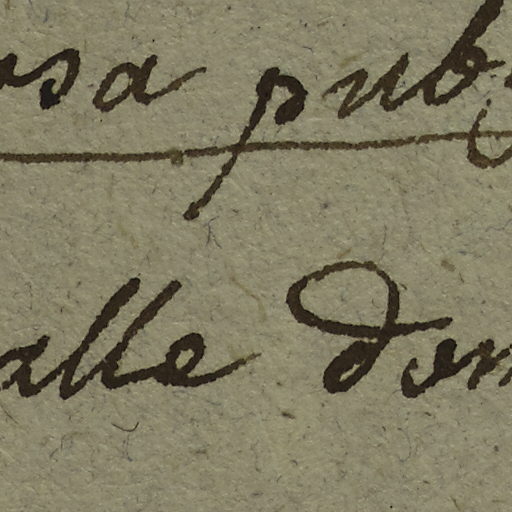 osa pub
alle dom